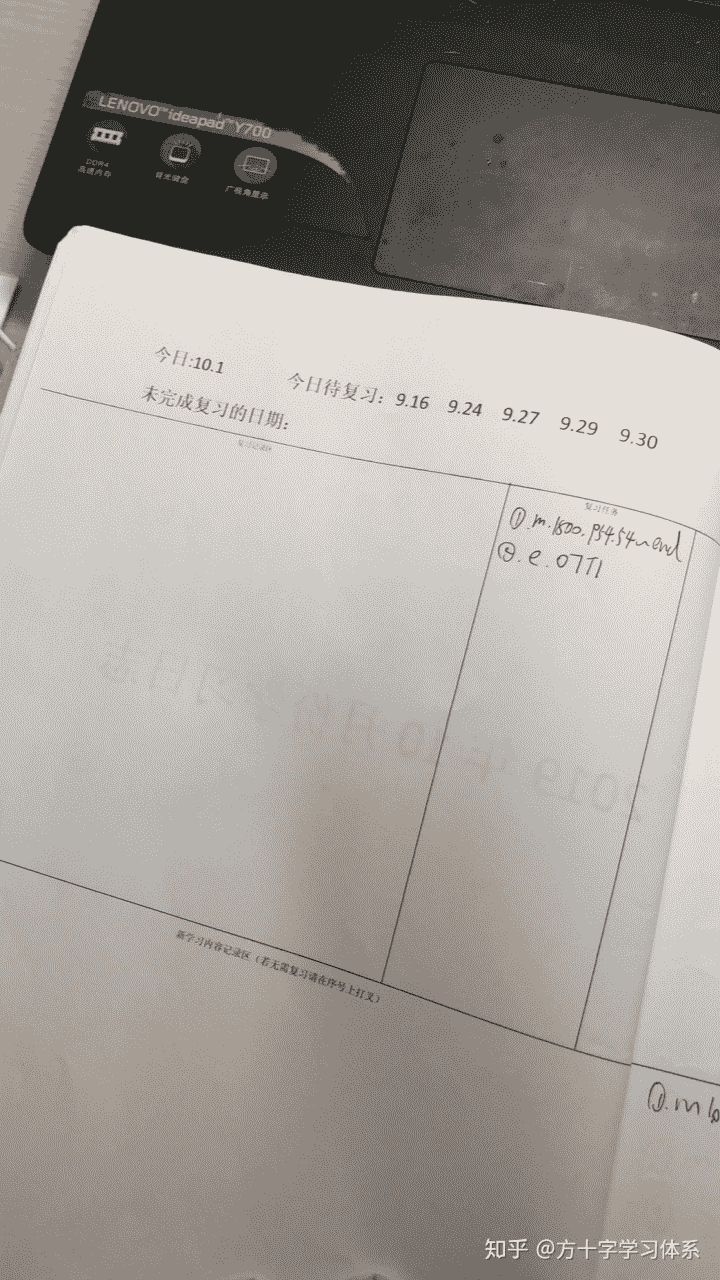 LENOVO™ ideapad™ Y700
DDR4
高速内存
背光键盘
广视角显示
今日:10.1 今日待复习：9.16 9.24 9.27 9.29 9.30
未完成复习的日期：
复习记录区
复习任务
①.m.1800.P54.54~end
②.e.07T1
2019 年 10 月份学习日志
新学习内容记录区（若无需复习请在序号上打叉）
①.m
知乎 @方十字学习体系